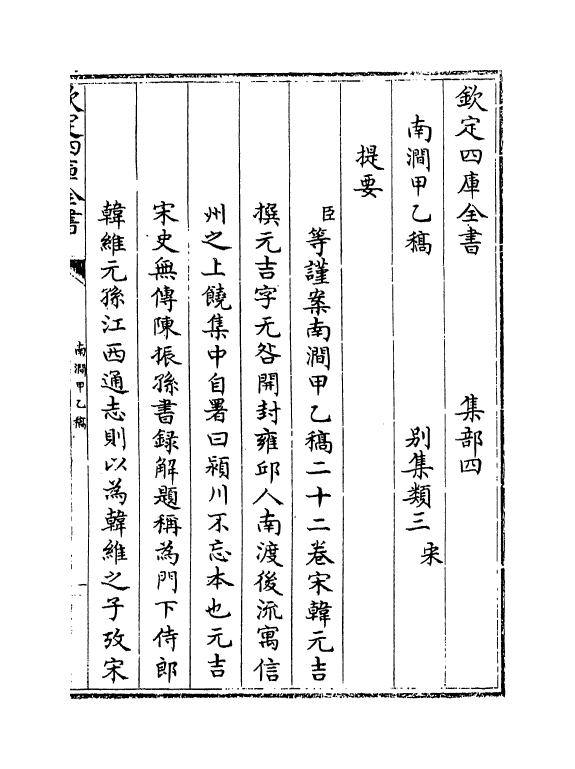 欽定四庫全書　集部四
南澗甲乙稿　別集類三宋
提要
臣等謹案南澗甲乙稿二十二卷宋韓元吉
撰元吉字无咎開封雍邱人南渡後流寓信
州之上饒集中自署曰潁川不忘本也元吉
宋史無傳陳振孫書録解題稱為門下侍郎
韓維元孫江西通志則以為韓維之子攷宋
欽定四庫全書
南澗甲乙稿
一